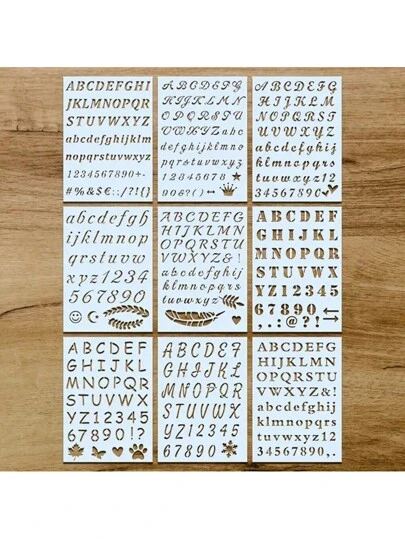 ABCDEFGHI
JKLMNOPQR
STUVWXYZ
abcdefghijklm
nopqrstuvwxyz
1234567890+-
#%&$€:;/?!()
ABCDEFG
HIJKLMN
OPQRSTU
VWXYZabc
defghijklmno
pqrstuvwxyz
12345678
906?()
ABCDEFG
HIJKLM
NOPQRST
UVWXYZ
abcdefghi
jklmnopqrs
tuvwxyz12
34567890
abcdefgh
ijklmnop
qrstuvw
xyz1234
567890
ABCDEFGH
IJKLMN
OPQRSTU
VWXYZ&!
abcdefghi
jklmnopqrs
tuvwxyz
ABCDE
FGHIJK
LMNOPQ
RSTUV
WXYZ12345
67890
,.:@?!
ABCDEF
GHIJKL
MNOPQR
STUVWX
YZ12345
67890!?
ABCDEF
GHIJKL
MNOPQR
STUVWX
YZ12345
67890
ABCDEFG
HIJKLMN
OPQRSTU
VWXYZ&!
abcdefghi
jklmnopqrs
tuvwxyz12
34567890,.